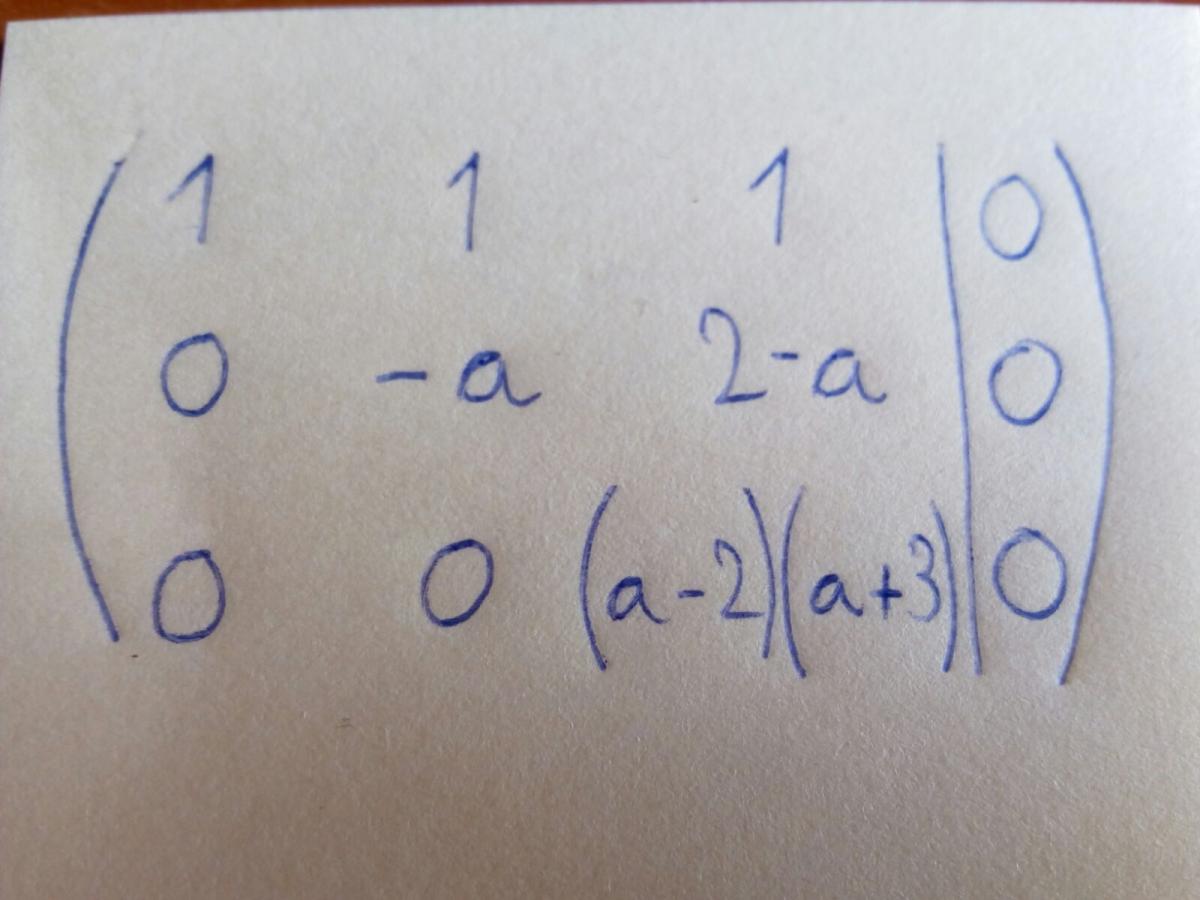 ( 1 1 1 | 0 )
0 -a 2-a | 0
0 0 (a-2)(a+3) | 0